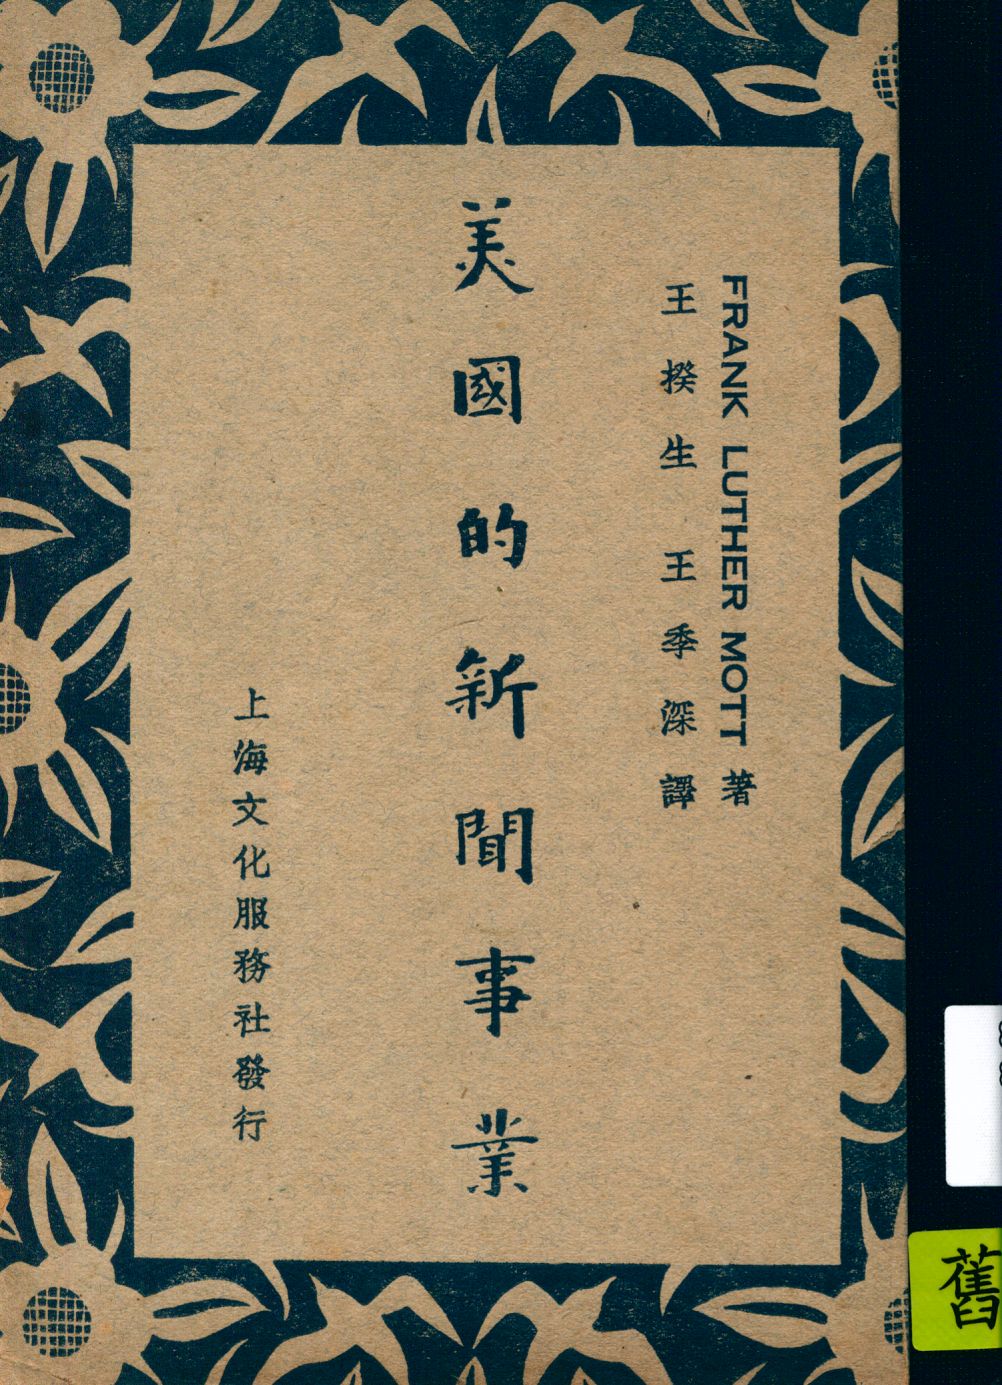 FRANK LUTHER MOTT 著
王揆生 王季深 譯
美國的新聞事業
上海文化服務社發行
舊